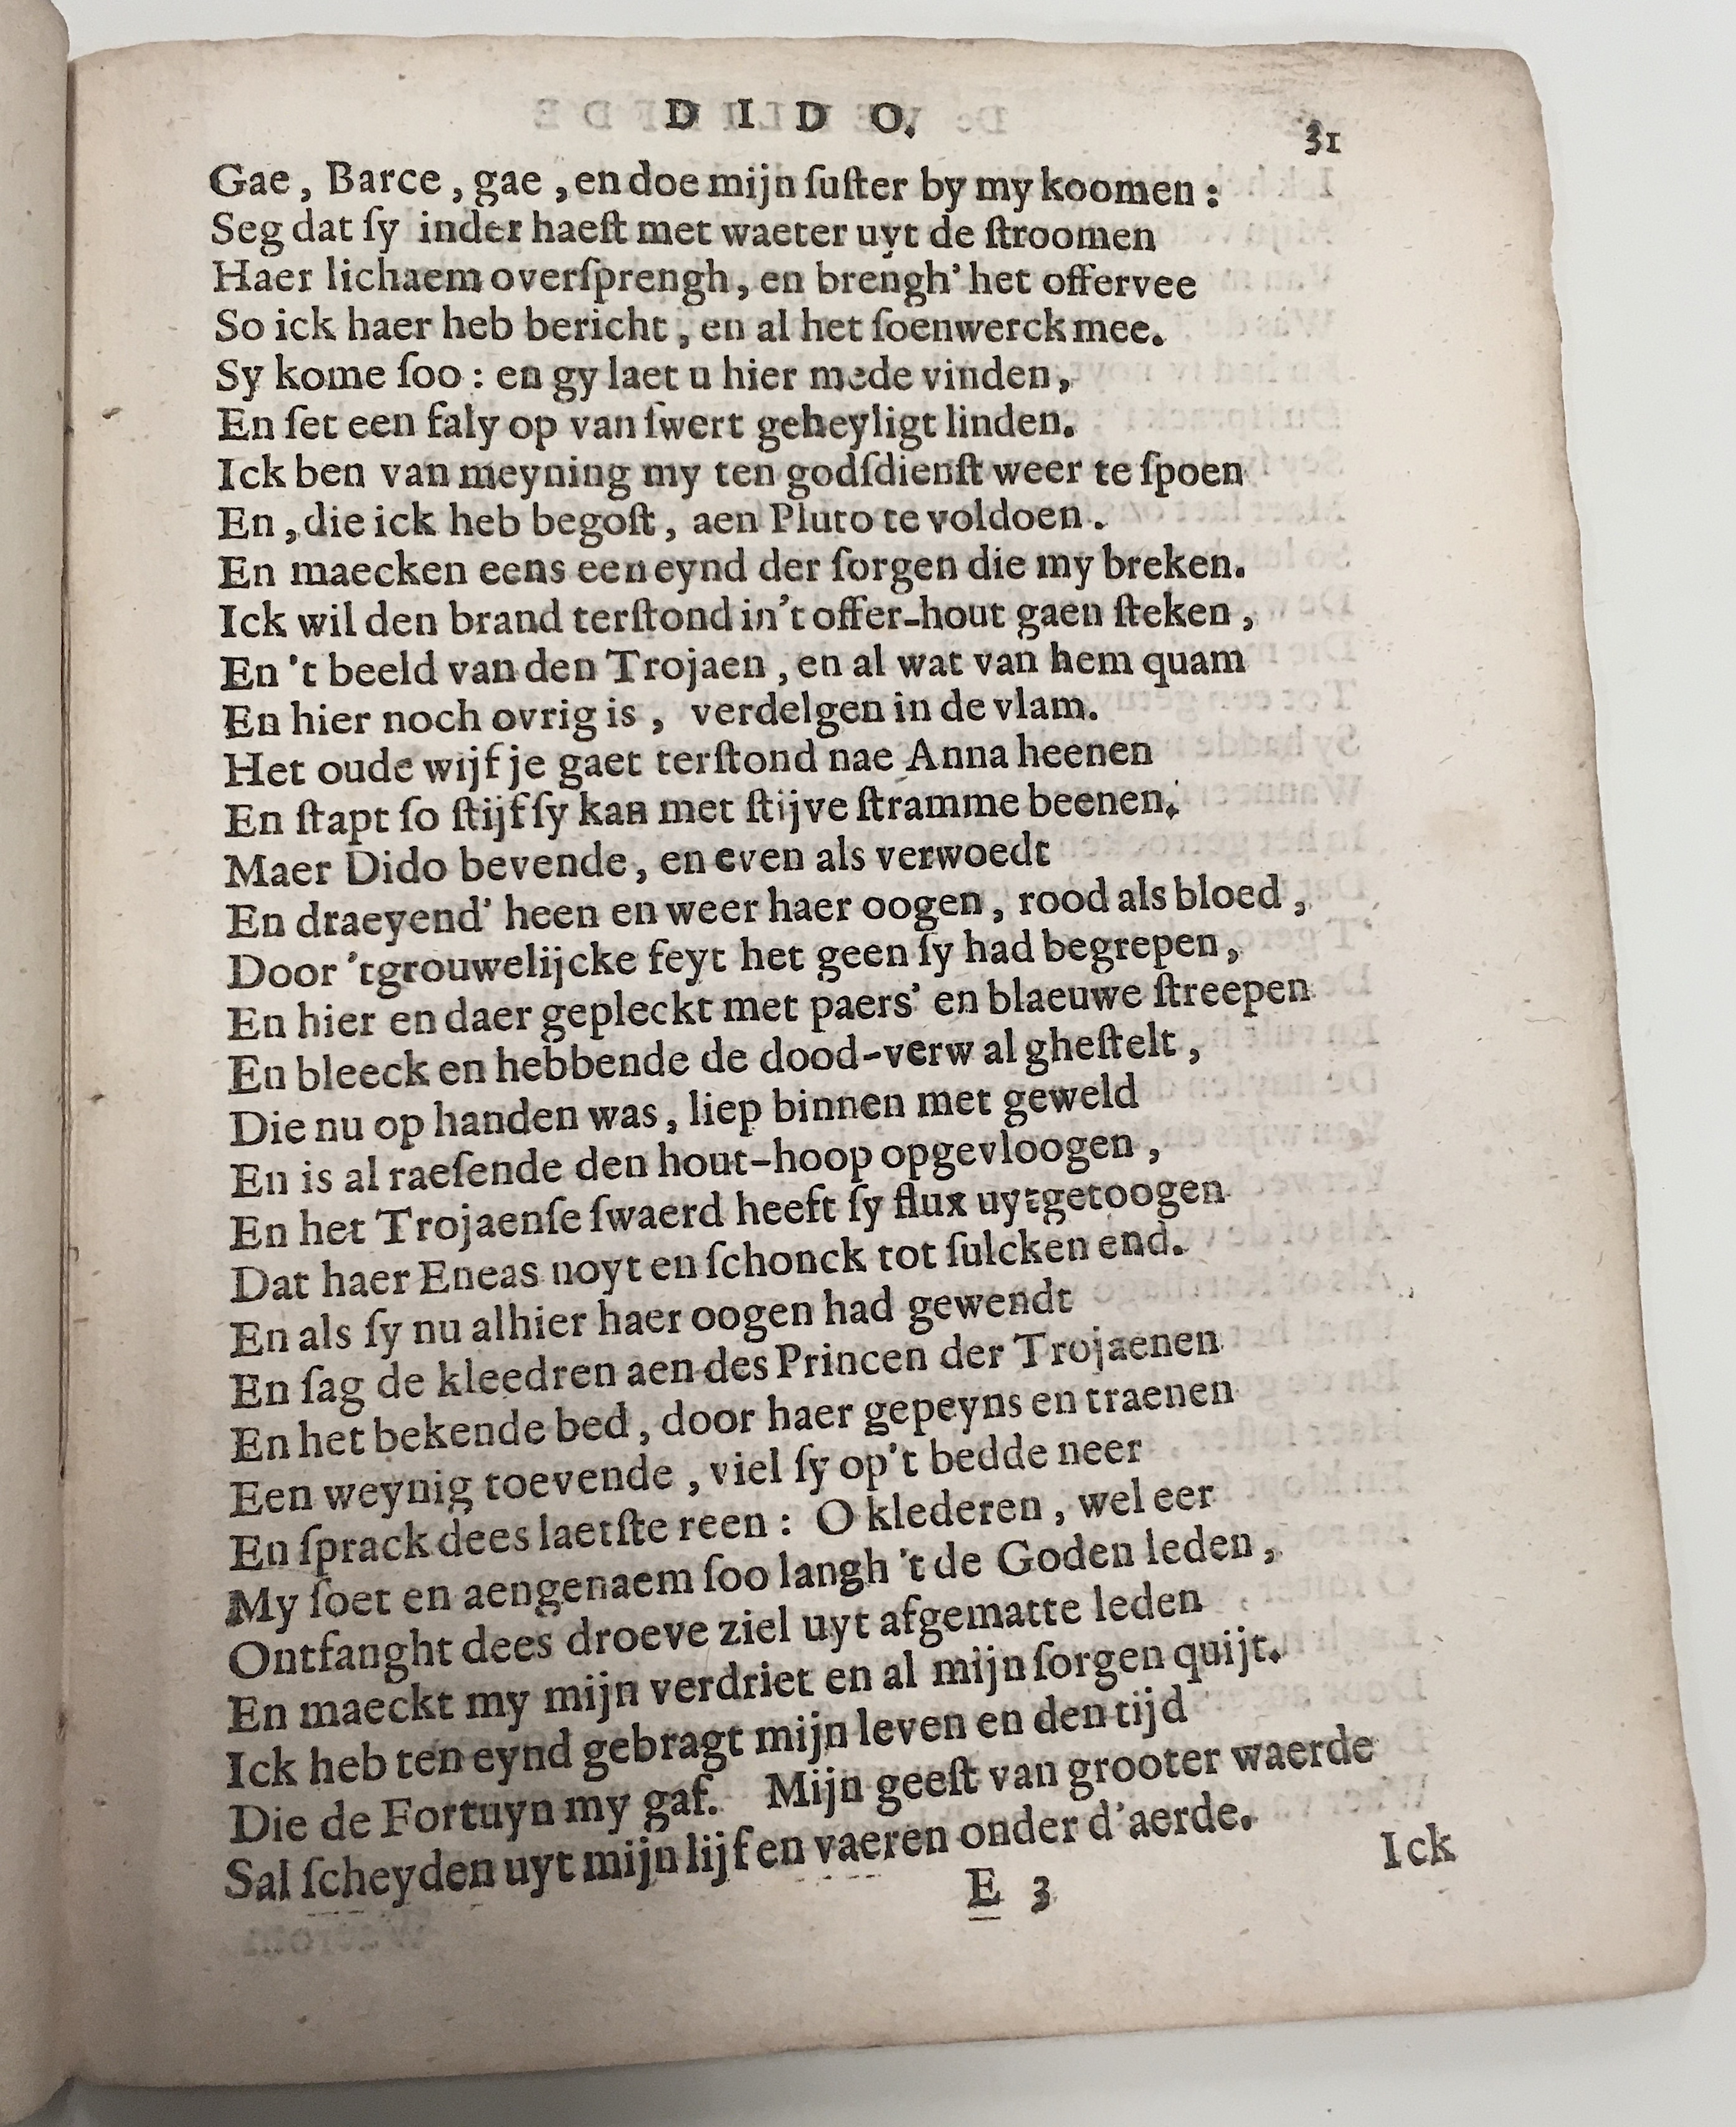 D I D O. 31
Gae, Barce, gae, en doe mijn ſuſter by my koomen:
Seg dat ſy inder haeſt met waeter uyt de ſtroomen
Haer lichaem overſprengh, en brengh' het offervee
So ick haer heb bericht, en al het ſoenwerck mee.
Sy kome ſoo: en gy laet u hier mede vinden,
En ſet een faly op van ſwert geheyligt linden.
Ick ben van meyning my ten godſdienſt weer te ſpoen
En, die ick heb begoſt, aen Pluto te voldoen.
En maecken eens een eynd der ſorgen die my breken.
Ick wil den brand terſtond in't offer-hout gaen ſteken,
En 't beeld van den Trojaen, en al wat van hem quam
En hier noch ovrig is, verdelgen in de vlam.
Het oude wijfje gaet terſtond nae Anna heenen
En ſtapt ſo ſtijf ſy kan met ſtijve ſtramme beenen.
Maer Dido bevende, en even als verwoedt
En draeyend' heen en weer haer oogen, rood als bloed,
Door 'tgrouwelijcke feyt het geen ſy had begrepen,
En hier en daer gepleckt met paers' en blaeuwe ſtreepen
En bleeck en hebbende de dood-verw al gheſtelt,
Die nu op handen was, liep binnen met geweld
En is al raeſende den hout-hoop opgevloogen,
En het Trojaenſe ſwaerd heeft ſy flux uytgetoogen
Dat haer Eneas noyt en ſchonck tot ſulcken end.
En als ſy nu alhier haer oogen had gewendt
En ſag de kleedren aen des Princen der Trojaenen
En het bekende bed, door haer gepeyns en traenen
Een weynig toevende, viel ſy op't bedde neer
En ſprack dees laetſte reen: O klederen, wel eer
My ſoet en aengenaem ſoo langh 't de Goden leden,
Ontfanght dees droeve ziel uyt afgematte leden
En maeckt my mijn verdriet en al mijn ſorgen quijt.
Ick heb ten eynd gebragt mijn leven en den tijd
Die de Fortuyn my gaf. Mijn geeſt van grooter waerde
Sal ſcheyden uyt mijn lijf en vaeren onder d'aerde.
E 3 Ick